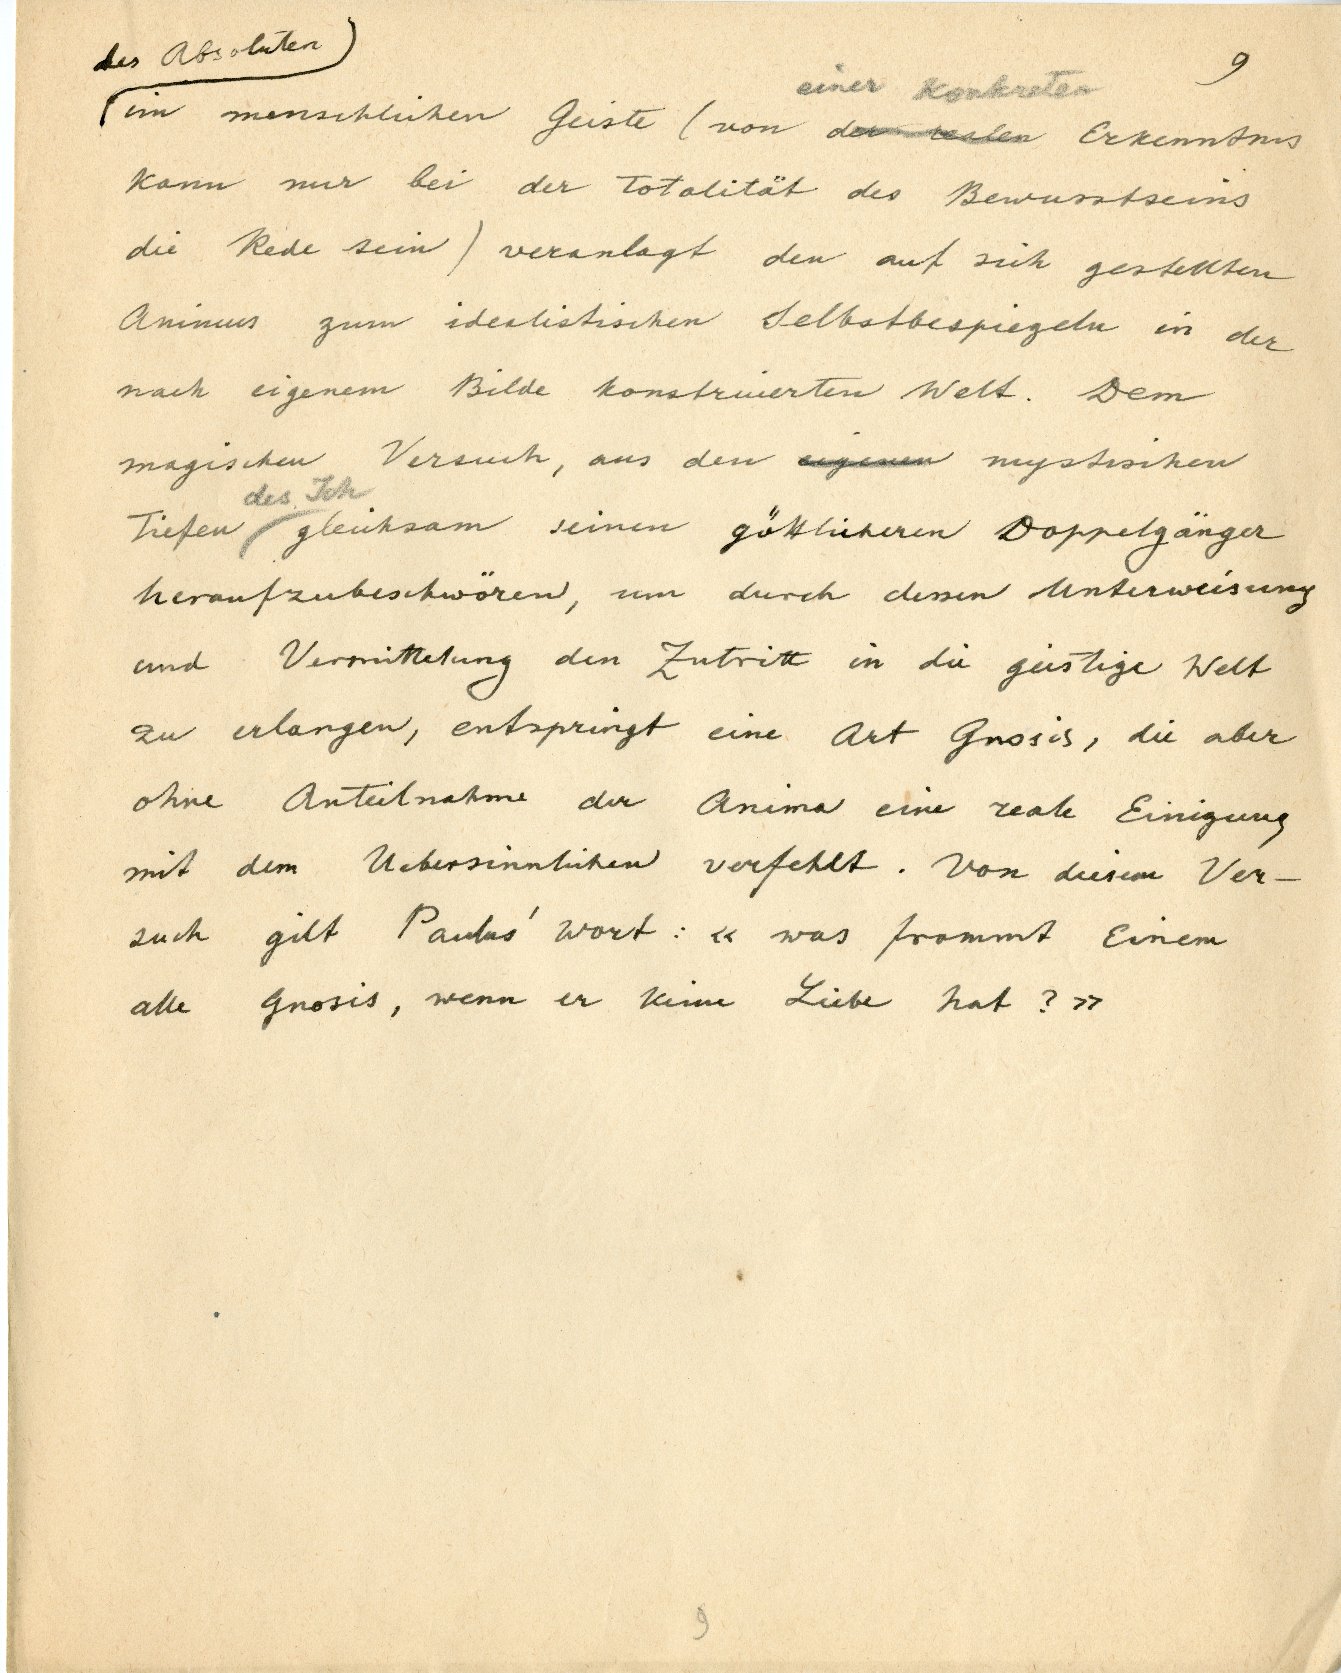 des Absoluten
9
einer konkreten
im menschlichen Geiste (von der realen Erkenntnis
kann nur bei der Totalität des Bewusstseins
die Rede sein) veranlagt den auf sich gestellten
Animus zum idealistischen Selbstbespiegeln in der
nach eigenem Bilde konstruierten Welt. Dem
magischen Versuch, aus den eigenen mystischen
des Ich
Tiefen gleichsam seinen göttlicheren Doppelgänger
heraufzubeschwören, um durch dessen Unterweisung
und Vermittelung den Zutritt in die geistige Welt
zu erlangen, entspringt eine Art Gnosis, die aber
ohne Anteilnahme der Anima eine reale Einigung
mit dem Uebersinnlichen verfehlt. Von diesem Ver-
such gilt Paulus' Wort: « was frommt Einem
alle Gnosis, wenn er keine Liebe hat? »
9